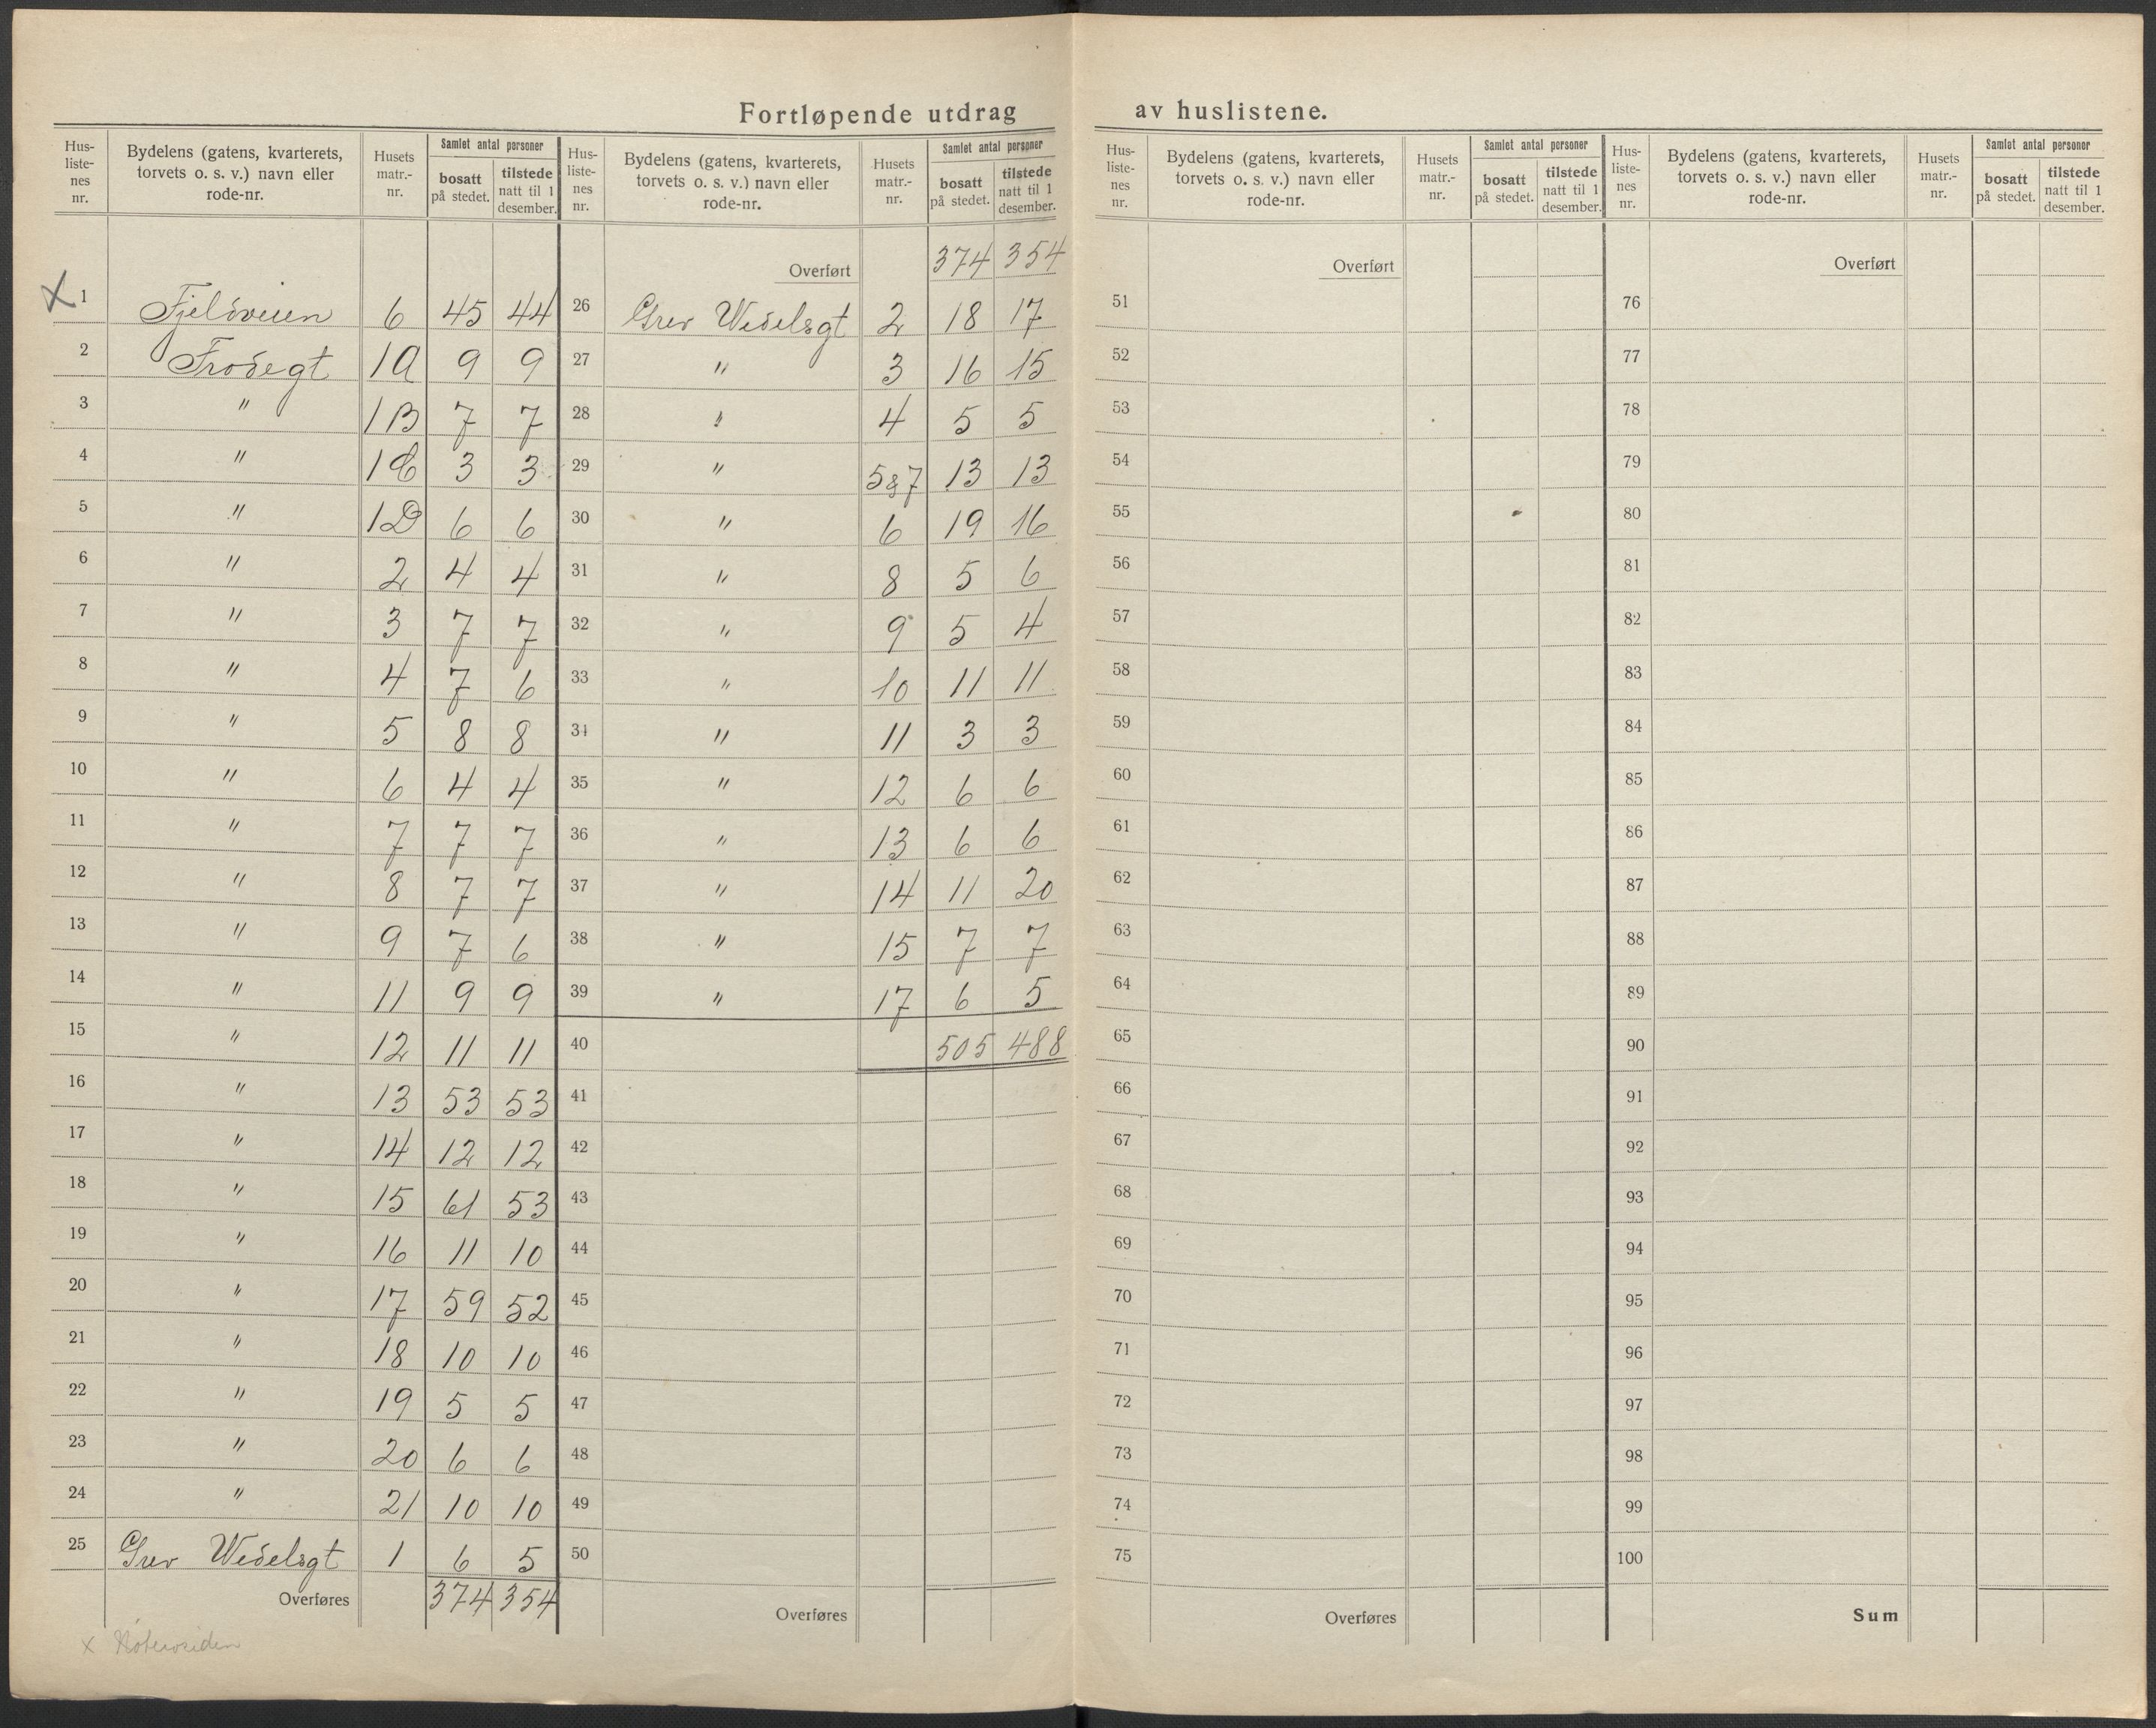 Fortløpende utdrag av huslistene.
Hus-listenes nr. | Bydelens (gatens, kvarterets, torvets o. s. v.) navn eller rode-nr. | Husets matr.-nr. | Samlet antal personer | bosatt på stedet. | tilstede natt til 1 desember.
X 1 Fjeldveien 6 45 44
2 Frodegt 1A 9 9
3 " 1B 7 7
4 " 1C 3 3
5 " 1D 6 6
6 " 2 4 4
7 " 3 7 7
8 " 4 7 6
9 " 5 8 8
10 " 6 4 4
11 " 7 7 7
12 " 8 7 7
13 " 9 7 6
14 " 11 9 9
15 " 12 11 11
16 " 13 53 53
17 " 14 12 12
18 " 15 61 53
19 " 16 11 10
20 " 17 59 52
21 " 18 10 10
22 " 19 5 5
23 " 20 6 6
24 " 21 10 10
25 Grev Wedelsgt 1 6 5
Overføres 374 354
x
Hus-listenes nr. | Bydelens (gatens, kvarterets, torvets o. s. v.) navn eller rode-nr. | Husets matr.-nr. | Samlet antal personer | bosatt på stedet. | tilstede natt til 1 desember.
Overført 374 354
26 Grev Wedelsgt 2 18 17
27 " 3 16 15
28 " 4 5 5
29 " 5&7 13 13
30 " 6 19 16
31 " 8 5 6
32 " 9 5 4
33 " 10 11 11
34 " 11 3 3
35 " 12 6 6
36 " 13 6 6
37 " 14 11 20
38 " 15 7 7
39 " 17 6 5
40 505 488
41
42
43
44
45
46
47
48
49
50
Overføres
Hus-listenes nr. | Bydelens (gatens, kvarterets, torvets o. s. v.) navn eller rode-nr. | Husets matr.-nr. | Samlet antal personer | bosatt på stedet. | tilstede natt til 1 desember.
Overført
51
52
53
54
55
56
57
58
59
60
61
62
63
64
65
66
67
68
69
70
71
72
73
74
75
Overføres
Hus-listenes nr. | Bydelens (gatens, kvarterets, torvets o. s. v.) navn eller rode-nr. | Husets matr.-nr. | Samlet antal personer | bosatt på stedet. | tilstede natt til 1 desember.
Overført
76
77
78
79
80
81
82
83
84
85
86
87
88
89
90
91
92
93
94
95
96
97
98
99
100
Sum